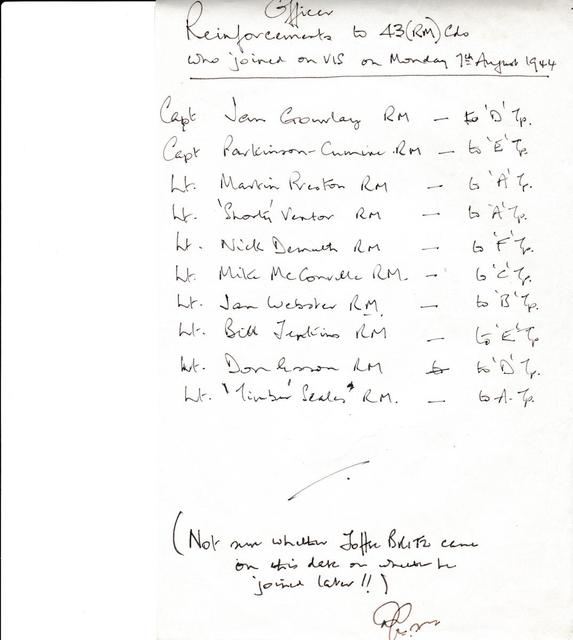 Officer
Reinforcements to 43(RM)Cdo
who joined on VIS on Monday 7th August 1944
Capt Jan Gourlay RM - to 'D' Tp.
Capt Parkinson-Cumine RM - to 'E' Tp.
Lt. Martin Preston RM - to 'A' Tp.
Lt. 'Shorty' Ventor RM - to 'A' Tp.
Lt. Nick Demuth RM - to 'F' Tp.
Lt. Mike McConville RM. - to 'C' Tp.
Lt. Jan Webster RM - to 'B' Tp.
Lt. Bill Jenkins RM - to 'E' Tp.
Lt. Don Esson RM to 'D' Tp.
Lt. 'Timber' Scales RM. - to A. Tp.
(Not sure whether Joffre BRITZ came
on this date or whether he
joined later!!)